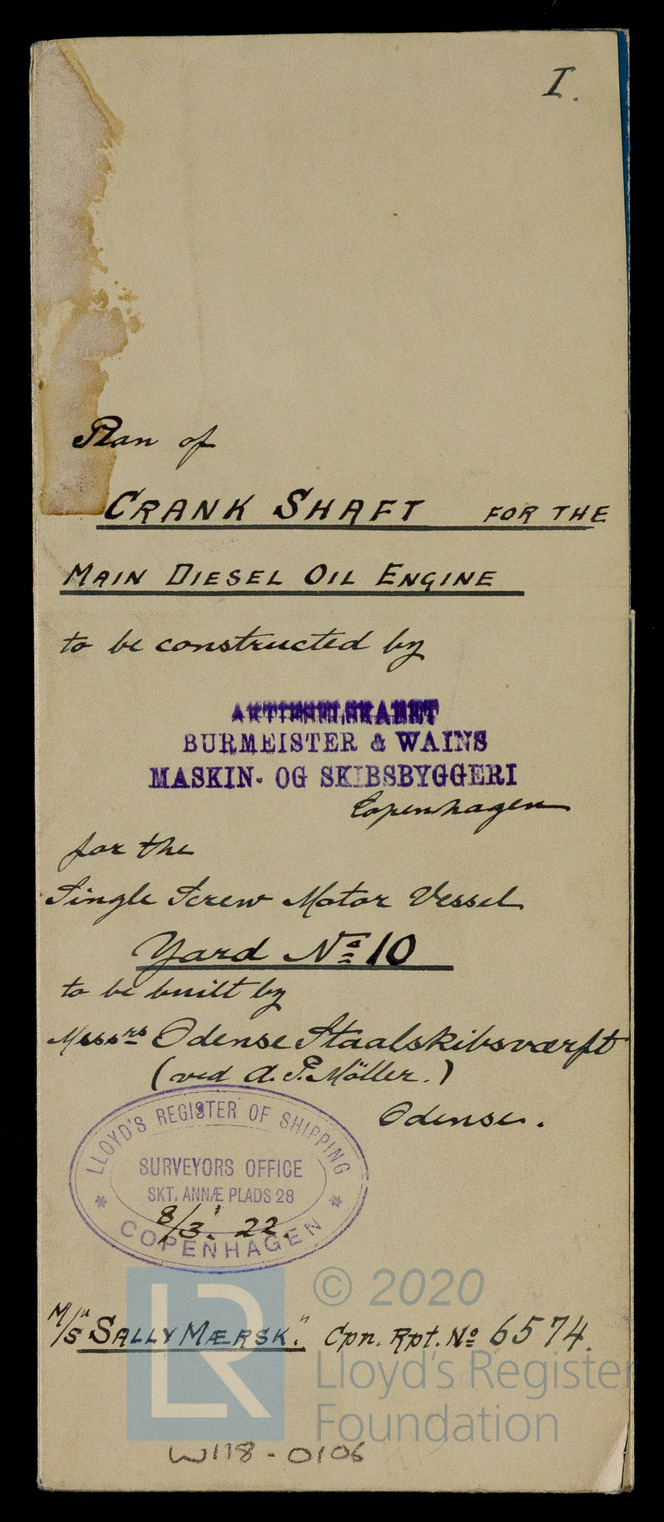 I.
Plan of
CRANK SHAFT FOR THE
MAIN DIESEL OIL ENGINE
to be constructed by
AKTIESELSKABET
BURMEISTER & WAINS
MASKIN- OG SKIBSBYGGERI
Copenhagen
for the
Single Screw Motor Vessel
Yard No 10
to be built by
Messrs Odense Staalskibsværft
(ved A. P. Möller.)
Odense.
LLOYD'S REGISTER OF SHIPPING
SURVEYORS OFFICE
SKT. ANNÆ PLADS 28
8/3. 22.
COPENHAGEN
© 2020
M/S "SALLY MÆRSK." Cpn. Rpt. No 6574.
LR
Lloyd's Register
Foundation
W118-0106